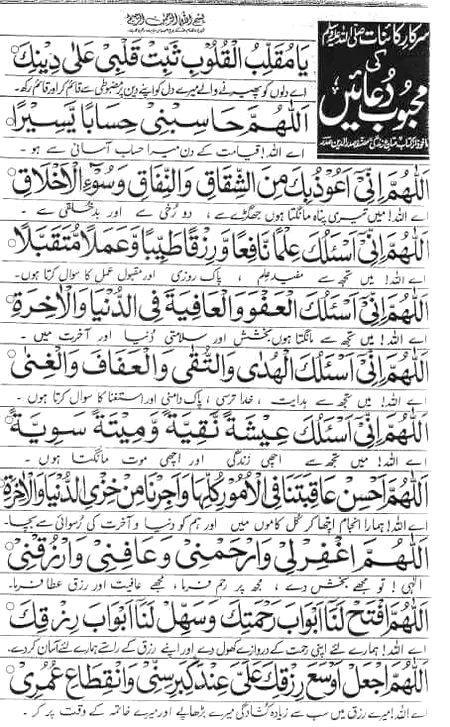 بسم اللہ الرحمٰن الرحیم
سرکار کائنات صلی اللہ علیہ وسلم
کی
محبوب دعائیں
يَا مُقَلِّبَ الْقُلُوْبِ ثَبِّتْ قَلْبِيْ عَلٰى دِيْنِكَ
اے دلوں کو پھیرنے والے میرے دل کو اپنے دین پر مضبوطی سے قائم کر اور قائم رکھ۔
اَللّٰهُمَّ حَاسِبْنِيْ حِسَابًا يَّسِيْرًا
اے اللہ! قیامت کے دن میرا حساب آسانی سے ہو ۔
اَللّٰهُمَّ اِنِّيْ اَعُوْذُبِكَ مِنَ الشِّقَاقِ وَالنِّفَاقِ وَسُوْٓءِ الْاَخْلَاقِ
اے اللہ! میں تیری پناہ مانگتا ہوں جھگڑے سے ، دو رُخی سے اور بدخلقی سے ۔
اَللّٰهُمَّ اِنِّيْ اَسْئَلُكَ عِلْمًا نَّافِعًا وَّرِزْقًا طَيِّبًا وَّعَمَلًا مُّتَقَبَّلًا
اے اللہ! میں تجھ سے مفید علم ، پاک روزی اور مقبول عمل کا سوال کرتا ہوں۔
اَللّٰهُمَّ اِنِّيْ اَسْئَلُكَ الْعَفْوَ وَالْعَافِيَةَ فِي الدُّنْيَا وَالْاٰخِرَةِ
اے اللہ! میں تجھ سے مانگتا ہوں بخشش اور سلامتی دُنیا اور آخرت میں ۔
اَللّٰهُمَّ اِنِّيْ اَسْئَلُكَ الْهُدٰى وَالتُّقٰى وَالْعَفَافَ وَالْغِنٰى
اے اللہ! میں تجھ سے ہدایت ، خدا ترسی ، پاک دامنی اور استغنا کا سوال کرتا ہوں ۔
اَللّٰهُمَّ اِنِّيْ اَسْئَلُكَ عِيْشَةً نَّقِيَّةً وَّمِيْتَةً سَوِيَّةً
اے اللہ! میں تجھ سے اچھی زندگی اور اچھی موت مانگتا ہوں ۔
اَللّٰهُمَّ اَحْسِنْ عَاقِبَتَنَا فِي الْاُمُوْرِ كُلِّهَا وَاَجِرْنَا مِنْ خِزْيِ الدُّنْيَا وَالْاٰخِرَةِ
اے اللہ! ہمارا انجام اچھا کر کُل کاموں میں اور ہم کو دنیا و آخرت کی رُسوائی سے بچا۔
اَللّٰهُمَّ اغْفِرْلِيْ وَارْحَمْنِيْ وَعَافِنِيْ وَارْزُقْنِيْ
الٰہی! تو مجھے بخش دے ، مجھ پر رحم فرما، مجھے عافیت اور رزق عطا فرما۔
اَللّٰهُمَّ افْتَحْ لَنَا اَبْوَابَ رَحْمَتِكَ وَسَهِّلْ لَنَا اَبْوَابَ رِزْقِكَ
اے اللہ! ہمارے لئے اپنی رحمت کے دروازے کھول دے اور اپنے رزق کے راستے ہمارے لئے آسان کر دے۔
اَللّٰهُمَّ اجْعَلْ اَوْسَعَ رِزْقِكَ عَلَيَّ عِنْدَ كِبَرِ سِنِّيْ وَانْقِطَاعِ عُمُرِيْ
اے اللہ! میرے رزق میں سب سے زیادہ کشادگی میرے بڑھاپے اور میرے خاتمہ کے وقت پر کر ۔